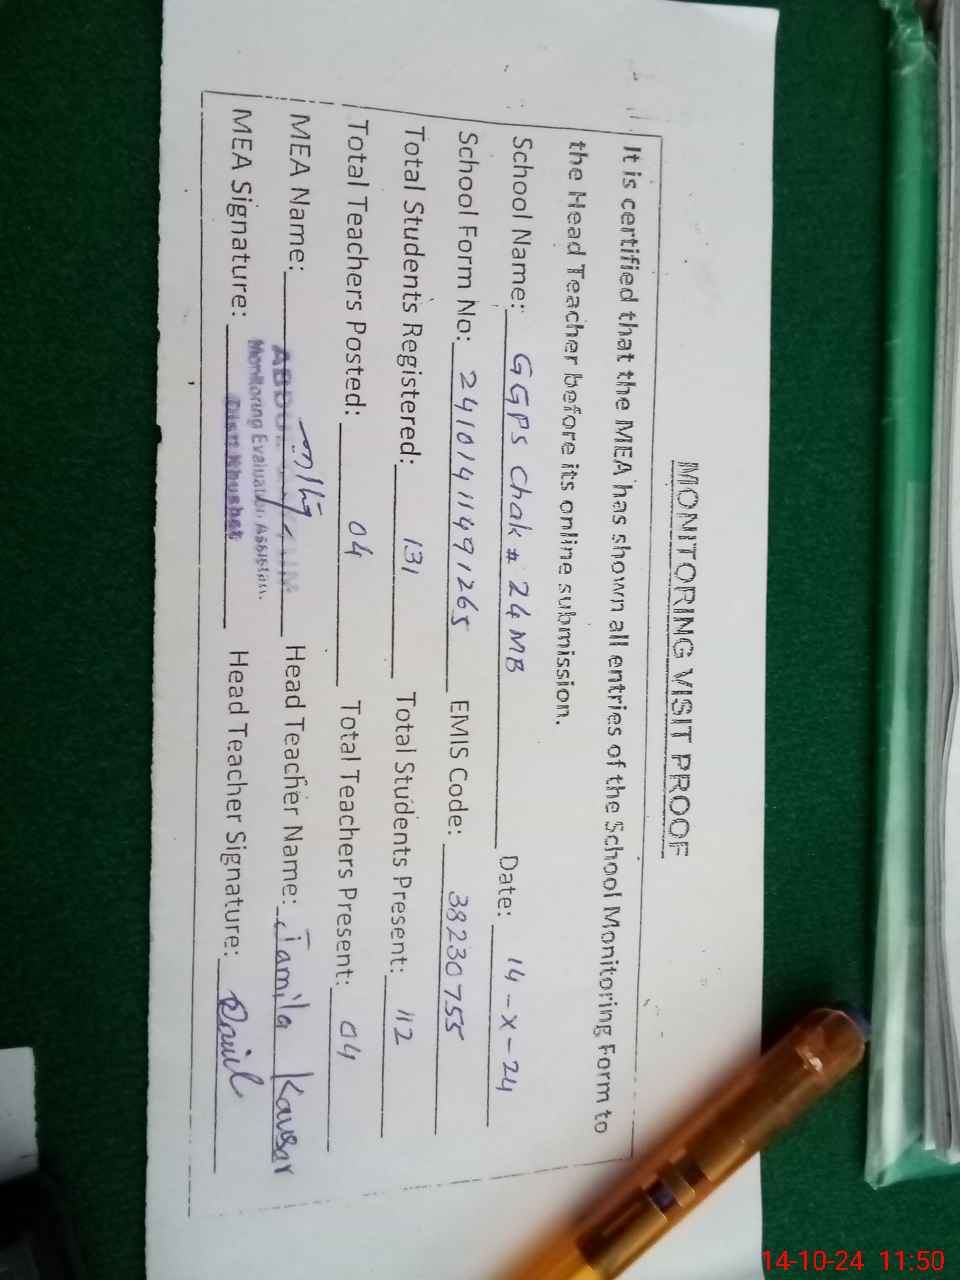 MONITORING VISIT PROOF
It is certified that the MEA has shown all entries of the School Monitoring Form to
the Head Teacher before its online submission.
School Name: GGPS Chak # 24 MB Date: 14-X-24
School Form No: 24101411491265 EMIS Code: 38230755
Total Students Registered: 131 Total Students Present: 112
Total Teachers Posted: 04 Total Teachers Present: 04
MEA Name: ABDUL Head Teacher Name: Jamila Kausar
Monitoring Evaluation Assistant
MEA Signature: Distt Khushab Head Teacher Signature:
14-10-24 11:50